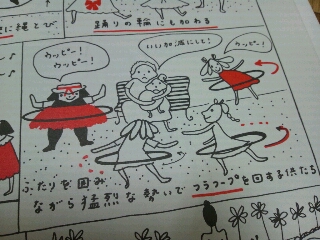 に縄とび
踊りの輪にも加わる
ウッピー!
ウッピー!
いい加減にしと!
ウッピー!
ふたりを囲み
ながら猛烈な勢いでフラフープを回する供たち